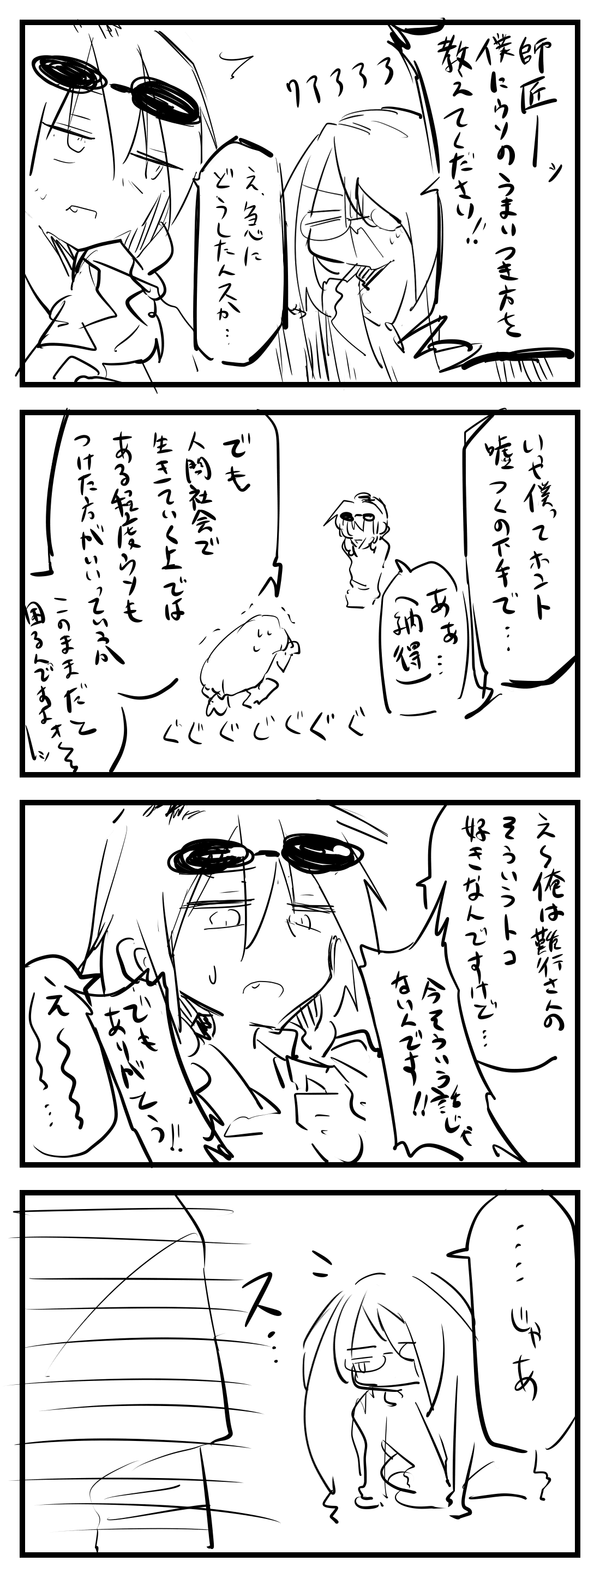 師匠ーッ
僕にウソのうまいつき方を
教えてください!!
ククククク
え、急に
どうしたんスか…
いや僕ってホント
嘘つくの下手で…
ああ…
(納得)
でも
人間社会で
生きていく上では
ある程度ウソも
つけた方がいいっていうか
このままだと
困るんですよォ〜ッ
ぐぐぐぐぐぐぐ
え〜俺は難行さんの
そういうトコ
好きなんですけど…
今そういう話じゃ
ないんです!!
でも
ありがとう!!
え〜〜…
……じゃあ
ス…